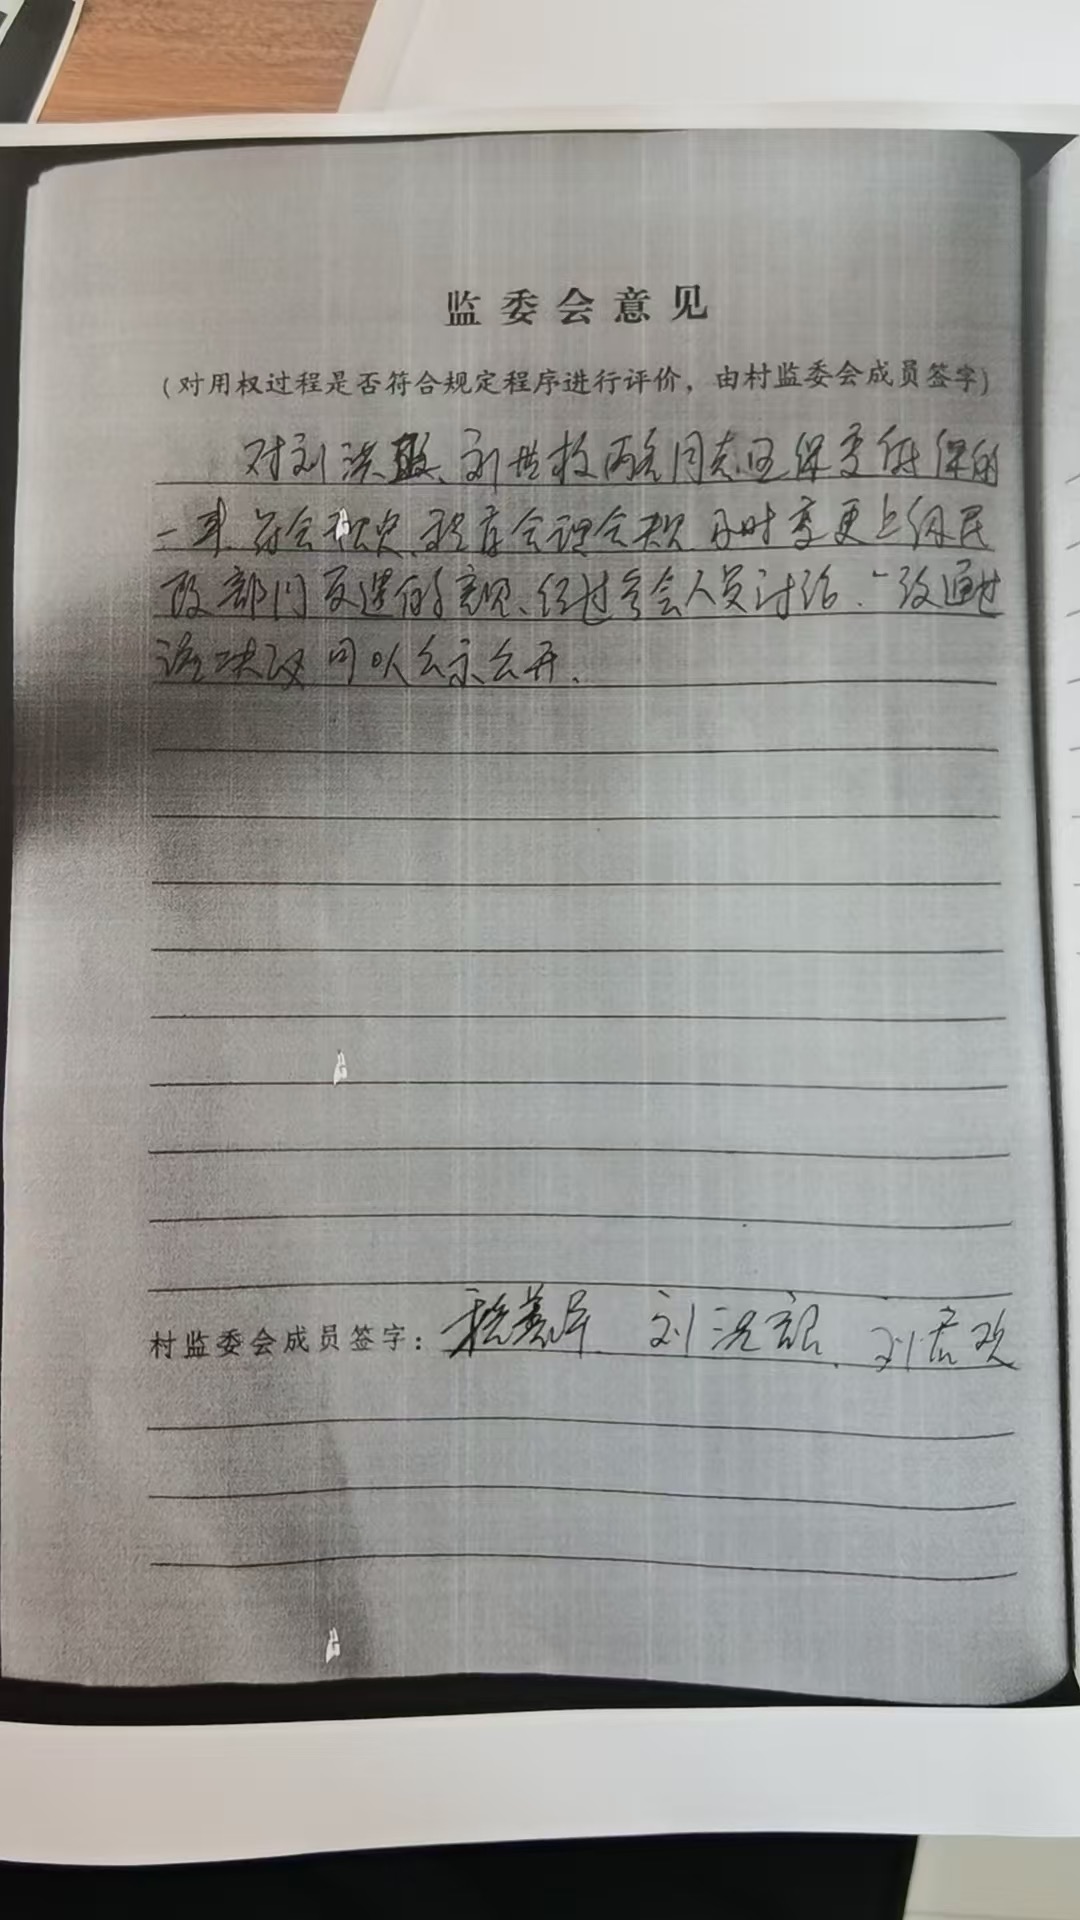 监委会意见
(对用权过程是否符合规定程序进行评价，由村监委会成员签字)
对刘洪 、刘世权两名同志五保变低保的
一事.符合 、程序合理合规.及时变更上级民
政部门反遗的意见、经过参会人员讨论.一致通过
该决议可以公示公开、
村监委会成员签字： 刘 刘